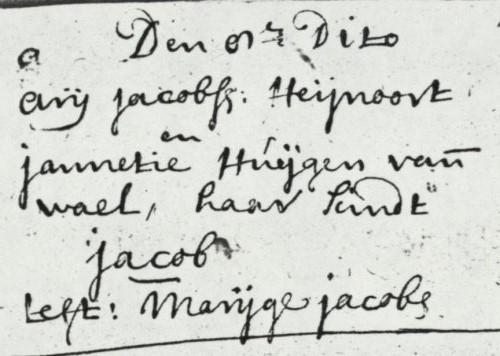 Den 01en Dito
Arij jacobsz: Heijnoort
en
jannetie Huijgen van
wael, haar kindt
jacob
test: Marijge jacobs